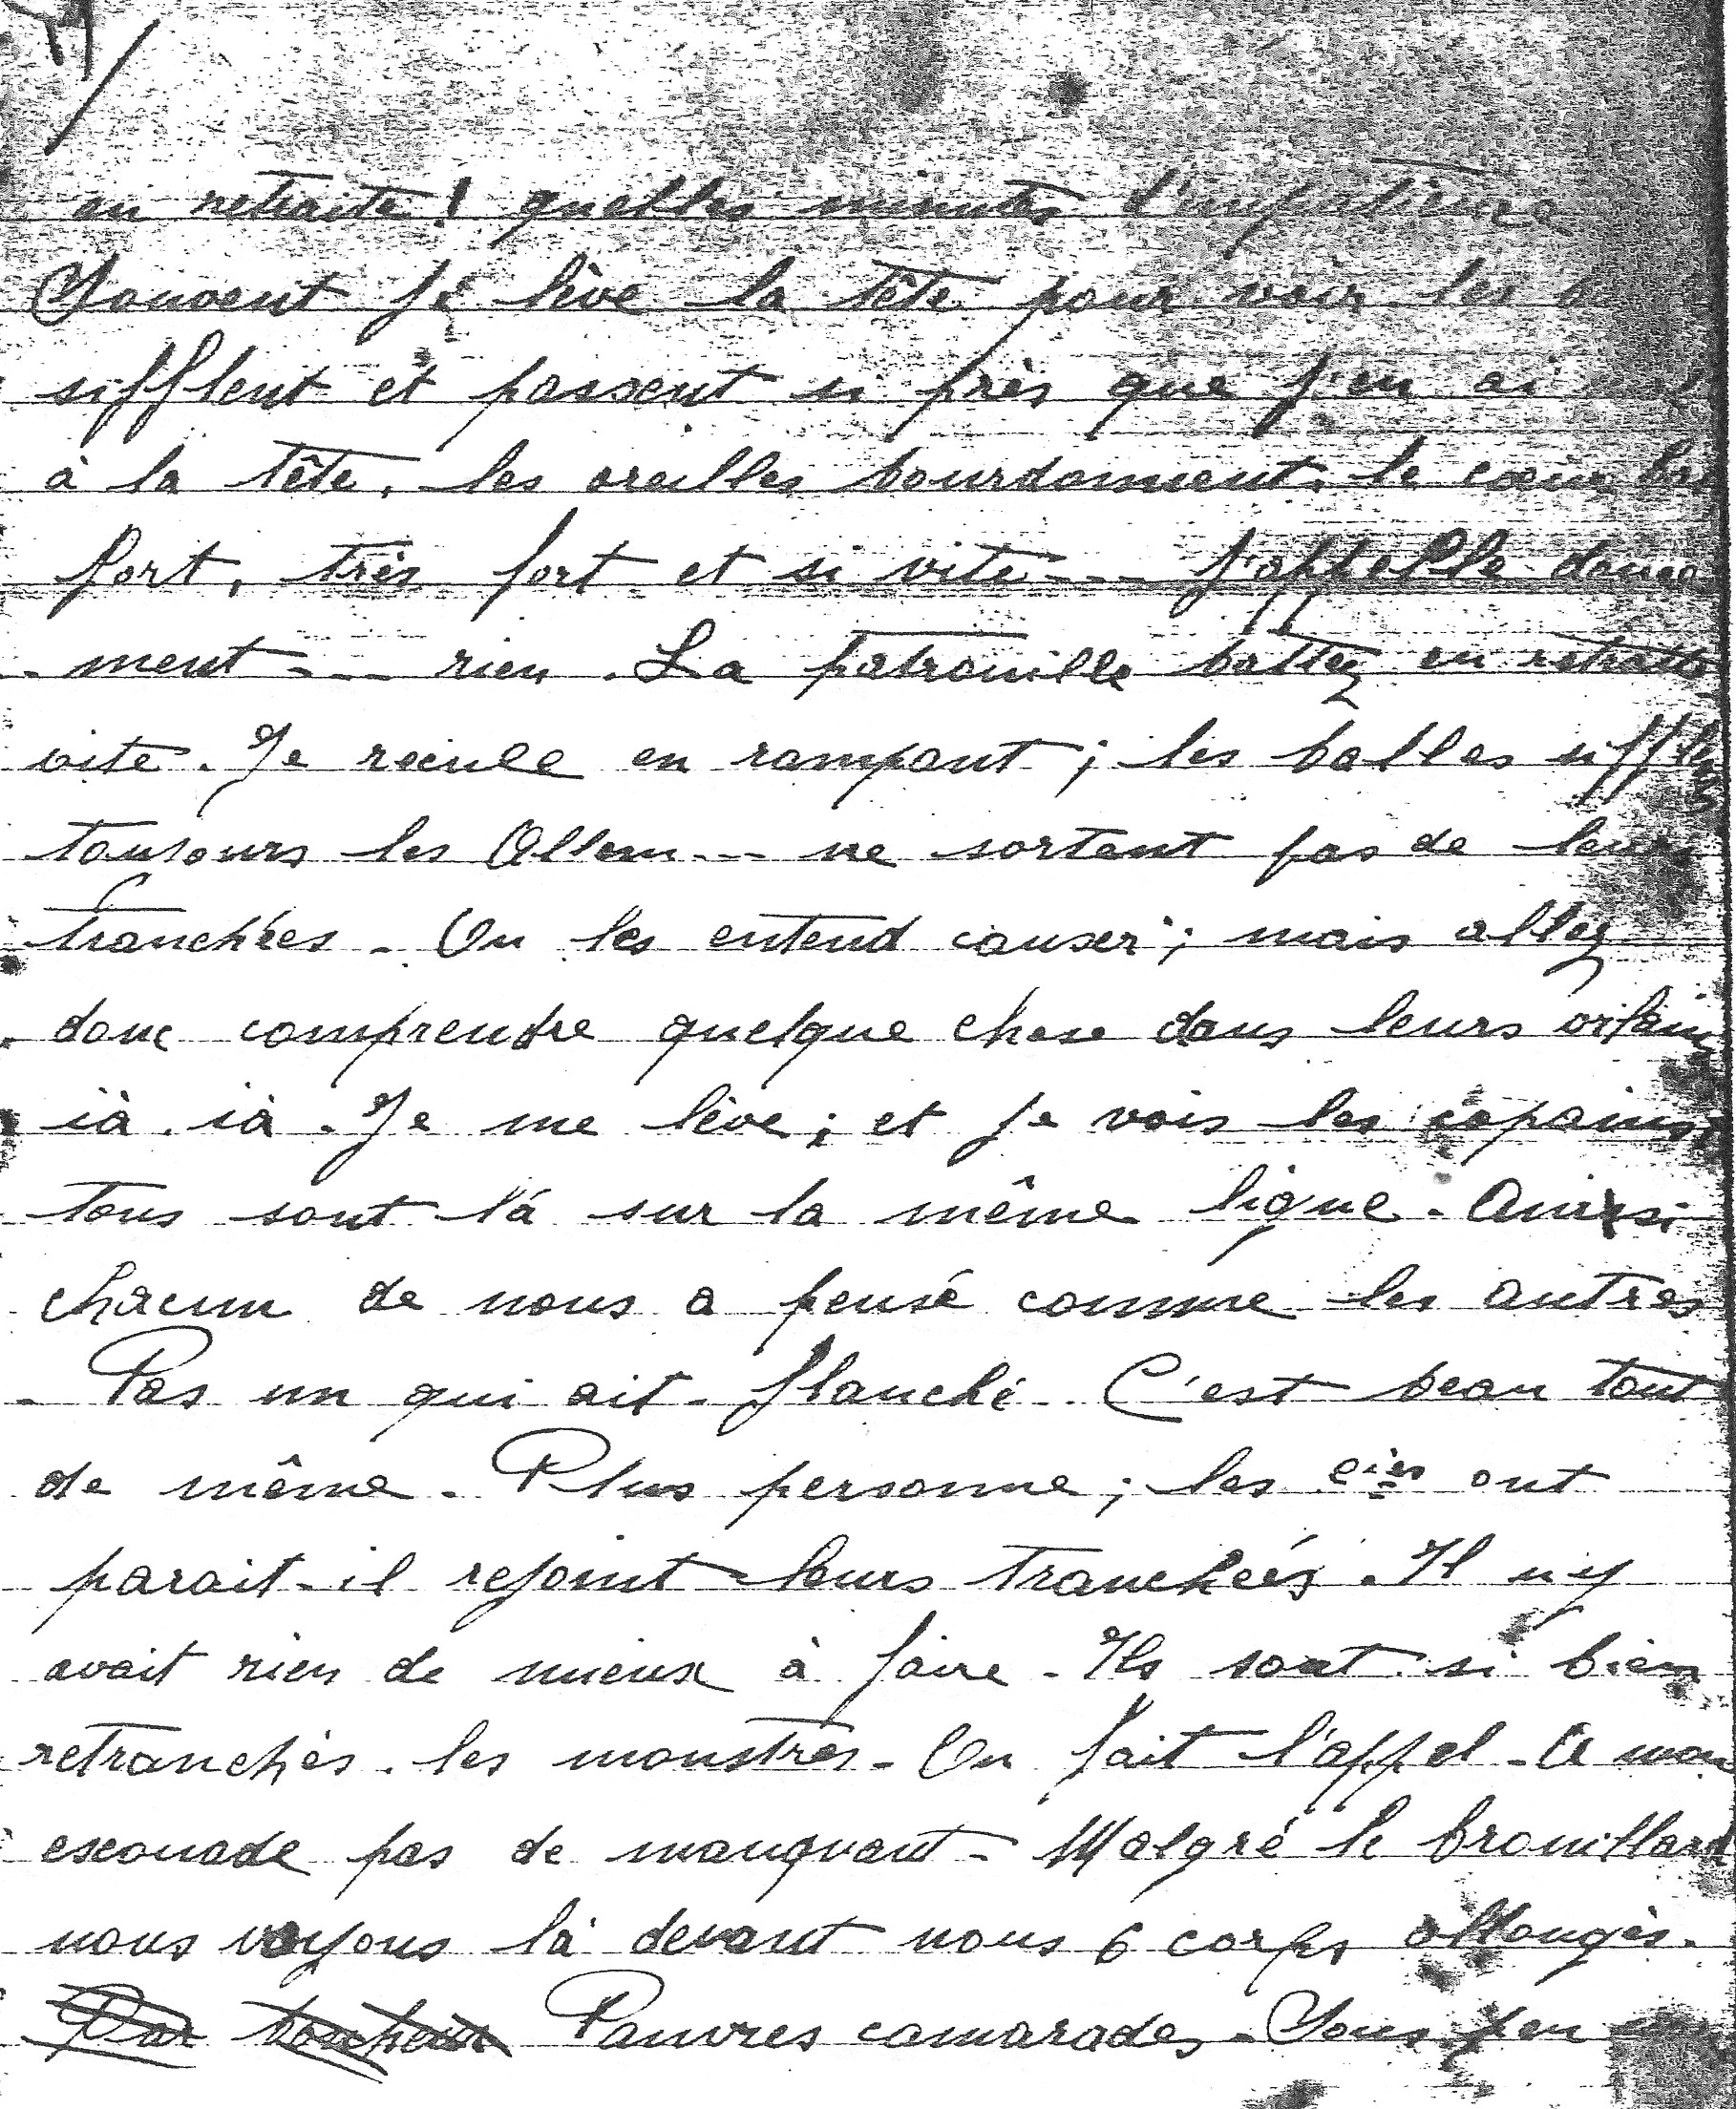 en retraite ! quelles minutes d'impatience
Souvent je lève la tête pour voir les
sifflent et passent si près que j'en ai
à la tête, les oreilles bourdonnent, le coeur
fort, très fort et si vite --- j'appelle douce
- ment --- rien . La patrouille battez en retraite
vite . Je recule en rampant ; les balles sifflent
toujours les Allem --- ne sortent pas de leurs
tranchées . On les entend causer ; mais allez
donc comprendre quelque chose dans leurs vilains
ià . ià . Je me lève ; et je vois les copains,
tous sont là sur la même ligne . Ainsi
chacun de nous a pensé comme les autres
- Pas un qui ait flanché . C'est beau tout
de même . Plus personne ; les cies ont
parait-il rejoint leurs tranchées . Il n'y
avait rien de mieux à faire . Ils sont si bien
retranchés . les monstres . On fait l'appel - A mon
escouade pas de manquant - Malgré le brouillard
nous voyons là devant nous 6 corps allongés .
Pauvres camarades . Sous peu